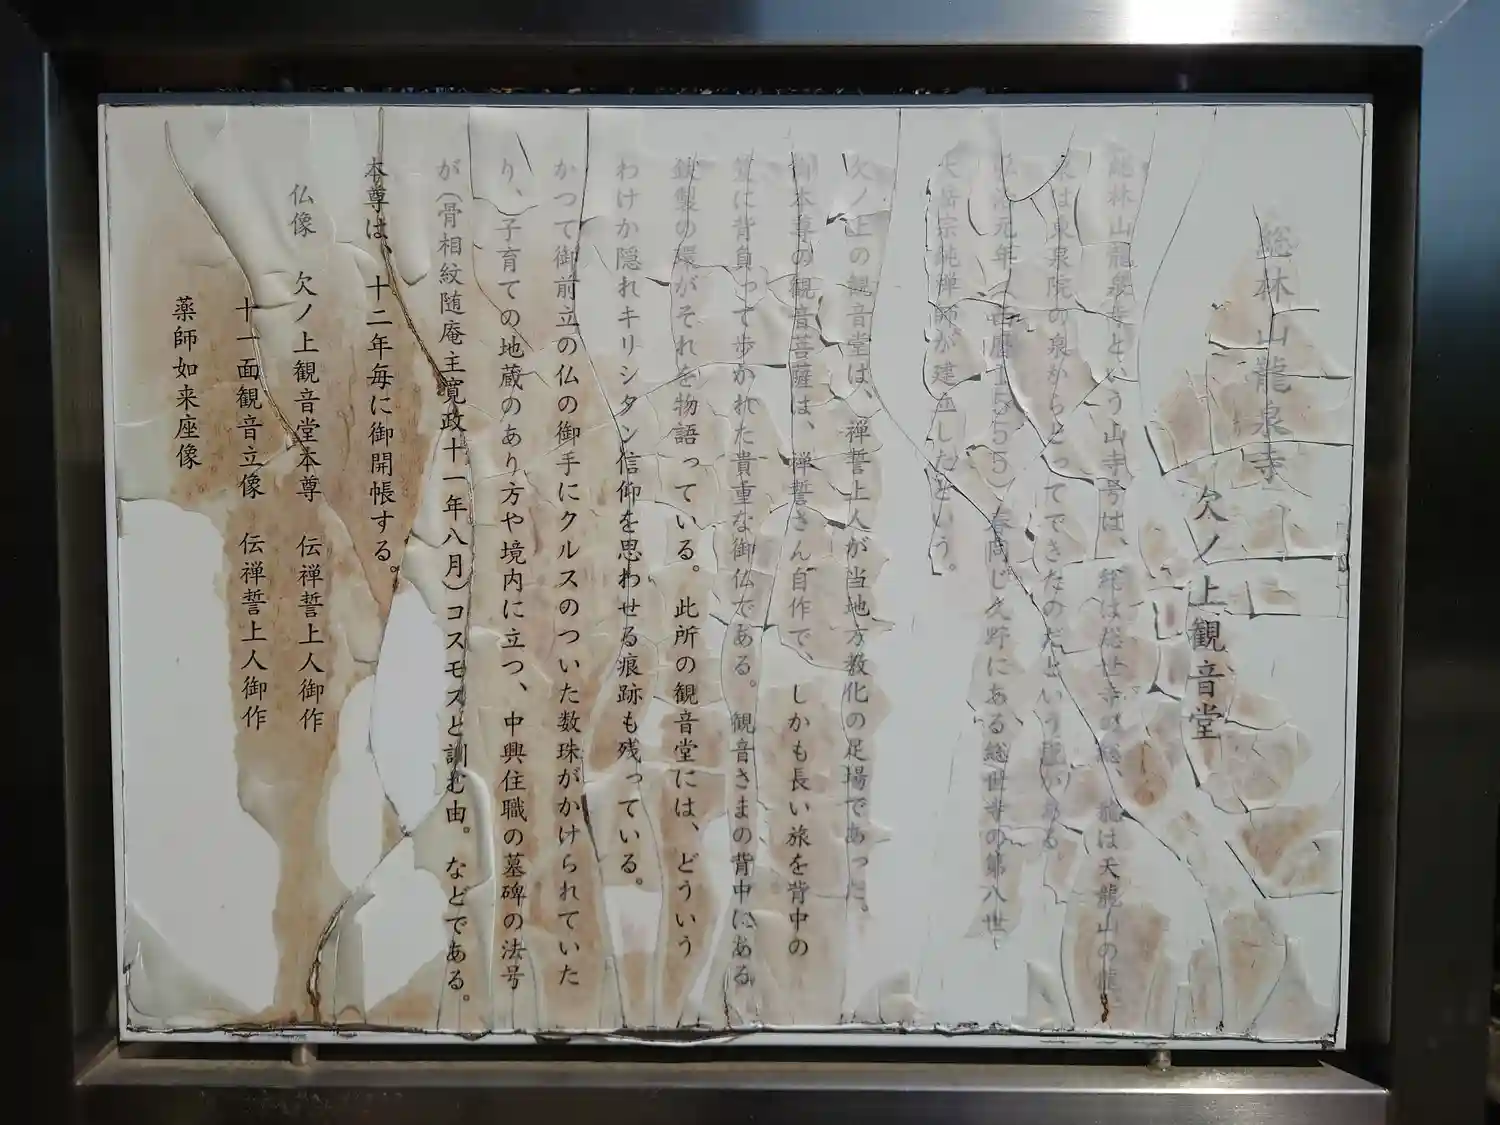 総林山龍泉寺
欠ノ上観音堂
総林山龍泉寺という山寺号は、総は総世寺の総、龍は天龍山の龍
又は東泉院の泉からとってできたのだという説がある
弘治元年(西暦1555)春同じ久野にある総世寺の第八世
宗純禅師が建立したという。
欠ノ上の観音堂は、禅誓上人が当地方教化の足場であった。
御本尊の観音菩薩は、禅誓さん自作で、しかも長い旅を背中の
笈に背負って歩かれた貴重な御仏である。観音さまの背中にある
鉄製の環がそれを物語っている。此所の観音堂には、どういう
わけか隠れキリシタン信仰を思わせる痕跡も残っている。
かつて御前立の仏の御手にクルスのついた数珠がかけられていた
り、子育ての地蔵のあり方や境内に立つ、中興住職の墓碑の法号
が(骨相紋随庵主寛政十一年八月)コスモスと訓む由。などである。
本尊は、十二年毎に御開帳する。
仏像 欠ノ上観音堂本尊 伝禅誓上人御作
十一面観音立像 伝禅誓上人御作
薬師如来座像。